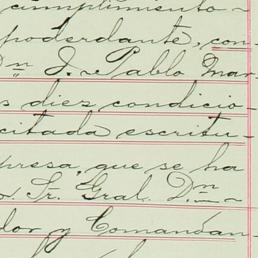 cumplimento-
poderdante, con-
Dn J. Pablo Mar-
s diez condicio-
citada escritu-
presa que se ha
or. Sr. Gral. Dn -
dor y Comandan-